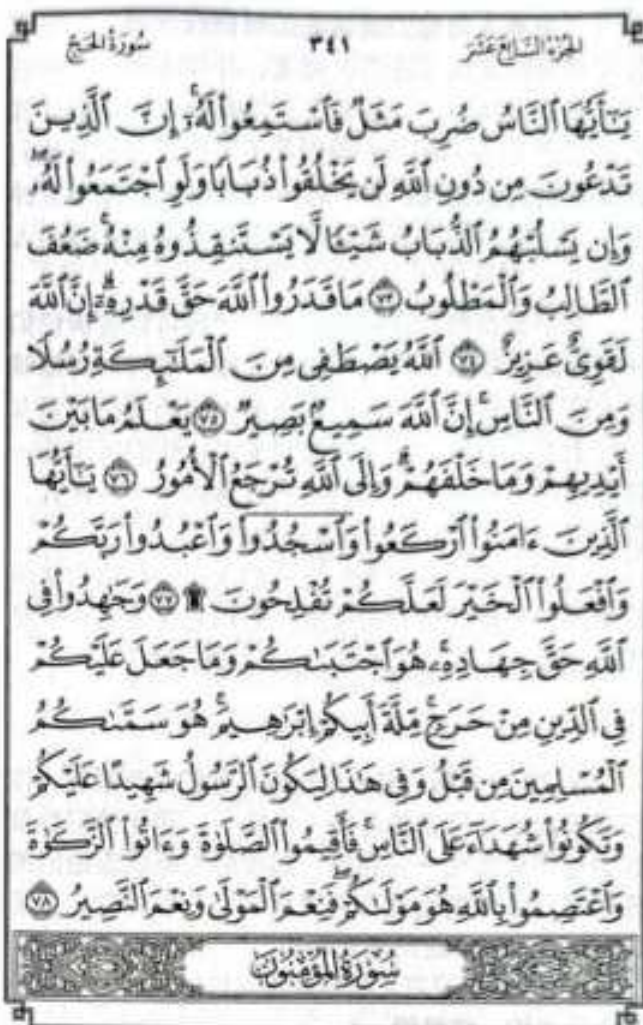 الجزء السابع عشر ٣٤١ سورة الحج
يَٰٓأَيُّهَا ٱلنَّاسُ ضُرِبَ مَثَلٌ فَٱسْتَمِعُوا۟ لَهُۥٓ ۚ إِنَّ ٱلَّذِينَ
تَدْعُونَ مِن دُونِ ٱللَّهِ لَن يَخْلُقُوا۟ ذُبَابًا وَلَوِ ٱجْتَمَعُوا۟ لَهُۥ ۖ
وَإِن يَسْلُبْهُمُ ٱلذُّبَابُ شَيْـًٔا لَّا يَسْتَنقِذُوهُ مِنْهُ ۚ ضَعُفَ
ٱلطَّالِبُ وَٱلْمَطْلُوبُ ٧٣ مَا قَدَرُوا۟ ٱللَّهَ حَقَّ قَدْرِهِۦٓ ۗ إِنَّ ٱللَّهَ
لَقَوِىٌّ عَزِيزٌ ٧٤ ٱللَّهُ يَصْطَفِى مِنَ ٱلْمَلَٰٓئِكَةِ رُسُلًا
وَمِنَ ٱلنَّاسِ ۚ إِنَّ ٱللَّهَ سَمِيعٌۢ بَصِيرٌ ٧٥ يَعْلَمُ مَا بَيْنَ
أَيْدِيهِمْ وَمَا خَلْفَهُمْ ۗ وَإِلَى ٱللَّهِ تُرْجَعُ ٱلْأُمُورُ ٧٦ يَٰٓأَيُّهَا
ٱلَّذِينَ ءَامَنُوا۟ ٱرْكَعُوا۟ وَٱسْجُدُوا۟ وَٱعْبُدُوا۟ رَبَّكُمْ
وَٱفْعَلُوا۟ ٱلْخَيْرَ لَعَلَّكُمْ تُفْلِحُونَ ۩ ٧٧ وَجَٰهِدُوا۟ فِى
ٱللَّهِ حَقَّ جِهَادِهِۦ ۚ هُوَ ٱجْتَبَىٰكُمْ وَمَا جَعَلَ عَلَيْكُمْ
فِى ٱلدِّينِ مِنْ حَرَجٍ ۚ مِّلَّةَ أَبِيكُمْ إِبْرَٰهِيمَ ۚ هُوَ سَمَّىٰكُمُ
ٱلْمُسْلِمِينَ مِن قَبْلُ وَفِى هَٰذَا لِيَكُونَ ٱلرَّسُولُ شَهِيدًا عَلَيْكُمْ
وَتَكُونُوا۟ شُهَدَآءَ عَلَى ٱلنَّاسِ ۚ فَأَقِيمُوا۟ ٱلصَّلَوٰةَ وَءَاتُوا۟ ٱلزَّكَوٰةَ
وَٱعْتَصِمُوا۟ بِٱللَّهِ هُوَ مَوْلَىٰكُمْ ۖ فَنِعْمَ ٱلْمَوْلَىٰ وَنِعْمَ ٱلنَّصِيرُ ٧٨
سُورَةُ المُؤْمِنُونَ